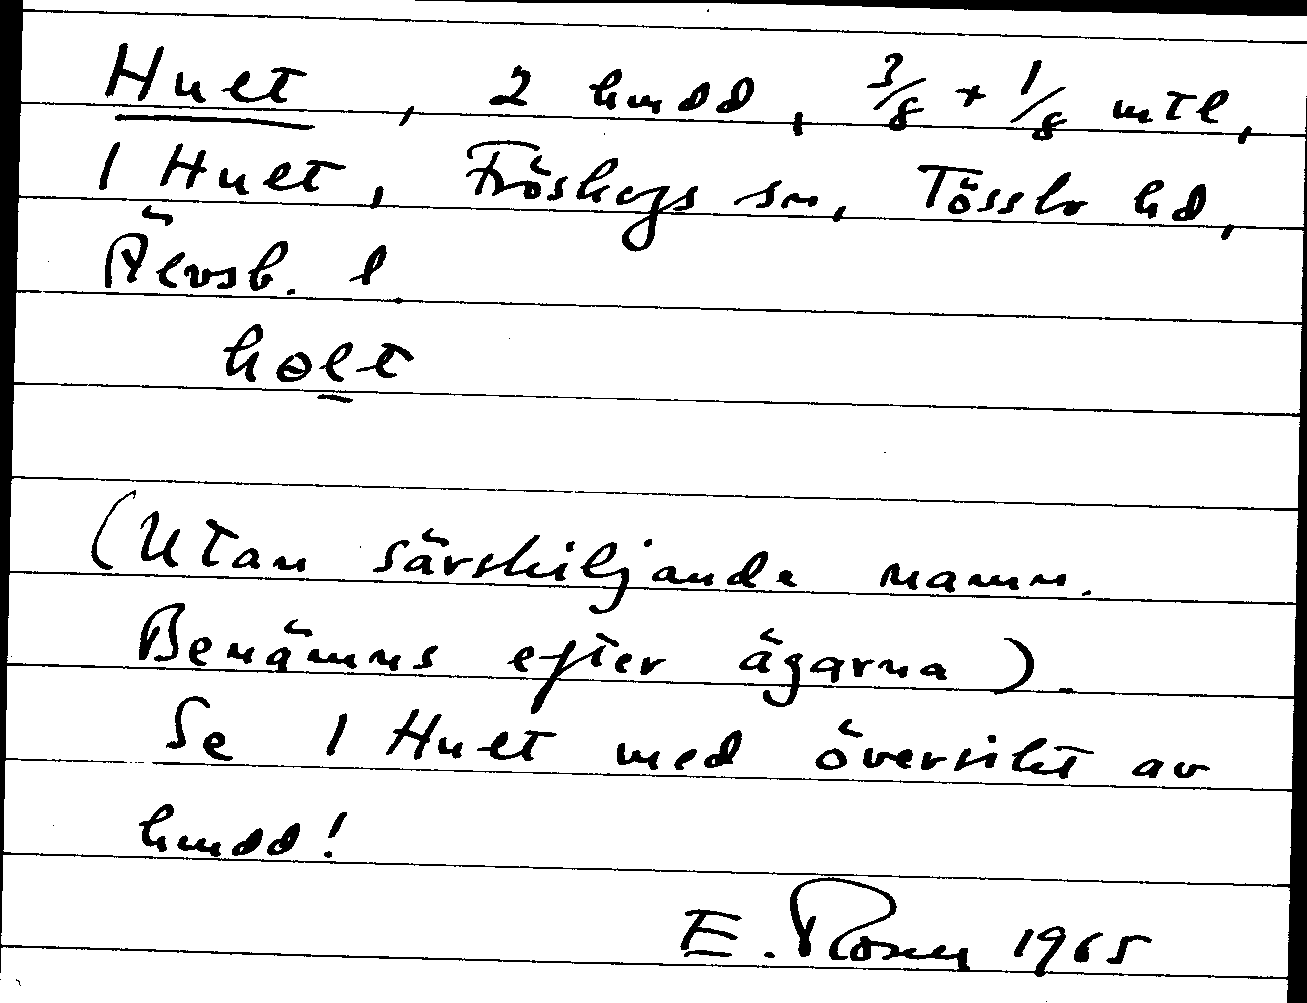 Hult, 2 hmdd, 3/8 + 1/8 mtl,
1 Hult, Fröskogs sn, Tössbo hd,
Älvsb. l.
hɵlt
(Utan särskiljande namn.
Benämns efter ägarna).
Se 1 Hult med översikt av
hmdd!
E. 1965